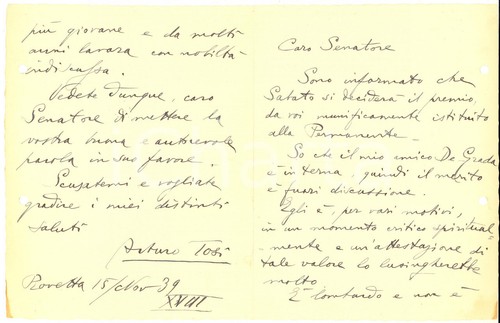 Caro Senatore
Sono informato che
Sabato si deciderà il premio,
da voi munificamente istituito
alla Permanente -
So che il mio amico De Grada
è in terna, quindi il merito
è fuori discussione.
Egli è, per vari motivi,
in un momento critico spiritual-
-mente e un'attestazione di
tale valore lo lusingherebbe
molto
È lombardo e non è
più giovane e da molti
anni lavora con nobiltà
indiscussa.
Vedete dunque, caro
Senatore di mettere la
vostra buona e autorevole
parola in suo favore.
Scusatemi e vogliate
gradire i miei distinti
saluti
Arturo Tosi
Rovetta 15/Nov 39
XVIII